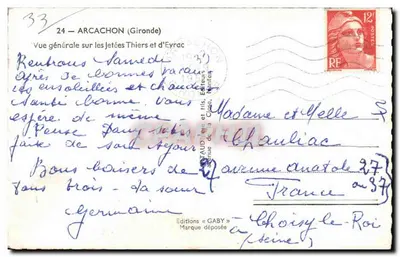 33
24 - ARCACHON (Gironde)
Vue générale sur les Jetées Thiers et d'Eyrac
12F
POSTES
RF
Rentrons Samedi
après de bonnes vacan
ces ensoleillées et chaudes
Santé bonne. vous
espère de même
satis-
faite de son séjour
Bons baisers de
tous trois - la soeur
Germaine
Madame et Melle
Chauliac
27 avenue Anatole 27
France ou 37
à Choisy-le-Roi
(Seine)
Editions "GABY"
Marque déposée